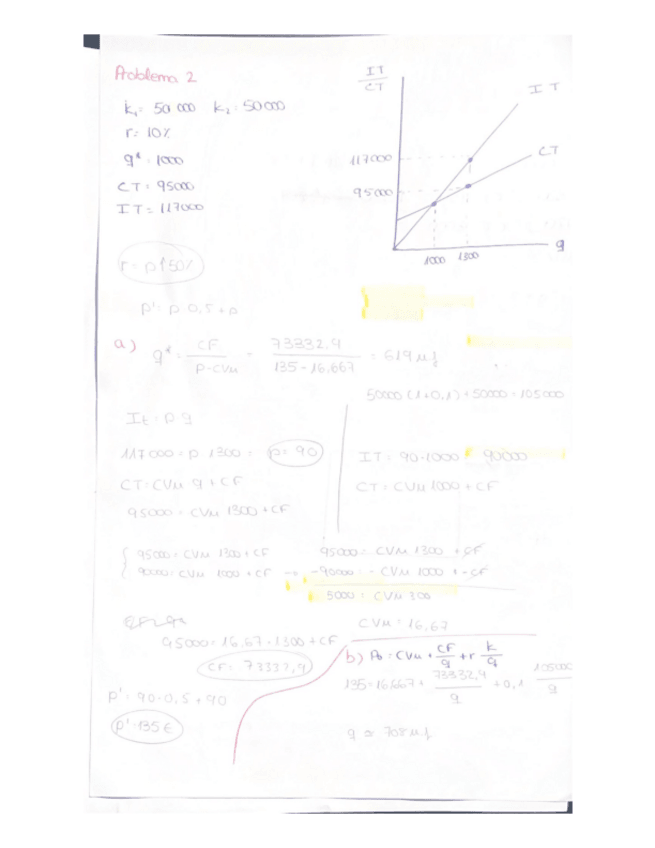 Problema 2
k₁ = 50 000 k₂ = 50000
r = 10%
q* = 1000
CT = 95000
IT = 117000
IT
CT
IT
CT
117000
95000
1000 1300
q
r - p↑50%
p' = p · 0,5 + p
a) q* = CF / p - CVu = 73332,9 / 135 - 16,667 = 619 uf
50000 (1+0,1) + 50000 = 105000
It = p · q
117000 = p · 1300 = p = 90
CT = CVu · q + CF
95000 = CVu · 1300 + CF
IT = 90 · 1000 = 90000
CT = CVu 1000 + CF
95000 = CVu 1300 + CF
90000 = CVu 1000 + CF →
95000 = CVu 1300 + CF
-90000 = - CVu 1000 + -CF
5000 = CVu 300
CVu = 16,67
95000 = 16,67 · 1300 + CF
CF = 73332,9
p' = 90 · 0,5 + 90
p' = 135 €
b) Po = CVu + CF/q + r k/q
135 = 16,667 + 73332,9/q + 0,1 105000/q
q ≃ 708 uf